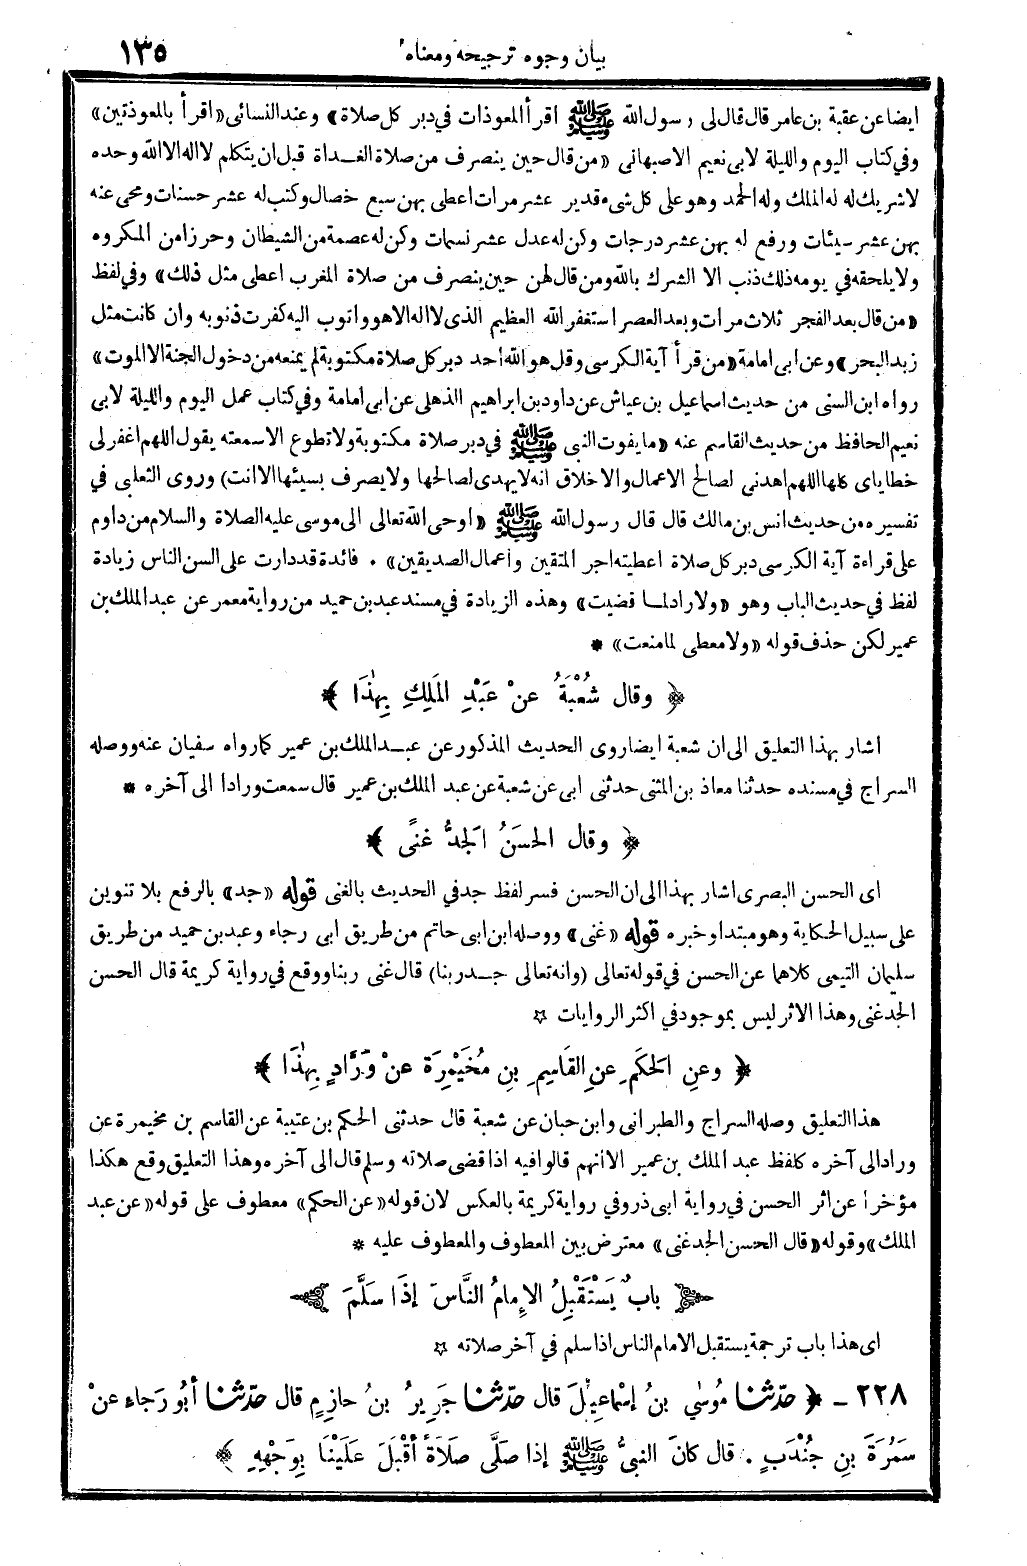 بيان وجوه ترجيحه ومعناه ١٣٥
ايضا عن عقبة بن عامر قال قال لى رسول الله ﷺ اقرأ المعوذات في دبر كل صلاة» وعند النسائى «اقرأ بالمعوذتين»
وفي كتاب اليوم والليلة لابى نعيم الاصبهانى «من قال حين ينصرف من صلاة الغداة قبل ان يتكلم لا اله الا الله وحده
لا شريك له له الملك وله الحمد وهو على كل شىء قدير عشر مرات اعطى بهن سبع خصال وكتب له عشر حسنات ومحى عنه
بهن عشر سيئات ورفع له بهن عشر درجات وكن له عدل عشر نسمات وكن له عصمة من الشيطان وحرزا من المكروه
ولا يلحقه في يومه ذلك ذنب الا الشرك بالله ومن قالهن حين ينصرف من صلاة المغرب اعطى مثل ذلك» وفي لفظ
«من قال بعد الفجر ثلاث مرات وبعد العصر استغفر الله العظيم الذى لا اله الا هو واتوب اليه كفرت ذنوبه وان كانت مثل
زبد البحر» وعن ابى امامة «من قرأ آية الكرسى وقل هو الله احد دبر كل صلاة مكتوبة لم يمنعه من دخول الجنة الا الموت»
رواه ابن السنى من حديث اسماعيل بن عياش عن داود بن ابراهيم الذهلى عن ابى امامة وفي كتاب عمل اليوم والليلة لابى
نعيم الحافظ من حديث القاسم عنه «ما يفوت النبى ﷺ في دبر صلاة مكتوبة ولا تطوع الا سمعته يقول اللهم اغفر لى
خطاياى كلها اللهم اهدنى لصالح الاعمال والاخلاق انه لا يهدى لصالحها ولا يصرف بسيئها الا انت) وروى الثعلبى في
تفسيره من حديث انس بن مالك قال قال رسول الله ﷺ «اوحى الله تعالى الى موسى عليه الصلاة والسلام من داوم
على قراءة آية الكرسى دبر كل صلاة اعطيته اجر المتقين وأعمال الصديقين» . فائدة قد دارت على السن الناس زيادة
لفظ في حديث الباب وهو «ولا راد لما قضيت» وهذه الزيادة في مسند عبد بن حميد من رواية معمر عن عبد الملك بن
عمير لكن حذف قوله «ولا معطى لما منعت» *
﴿ وقال شُعْبَةُ عنْ عَبْدِ المَلِكِ بِهٰذَا ﴾
اشار بهذا التعليق الى ان شعبة ايضا روى الحديث المذكور عن عبد الملك بن عمير كما رواه سفيان عنه ووصله
السراج في مسنده حدثنا معاذ بن المثنى حدثنى ابى عن شعبة عن عبد الملك بن عمير قال سمعت ورادا الى آخره *
﴿ وقال الحسَنُ الجَدُّ غنًى ﴾
اى الحسن البصرى اشار بهذا الى ان الحسن فسر لفظ جد في الحديث بالغنى قوله «جد» بالرفع بلا تنوين
على سبيل الحكاية وهو مبتدا وخبره قوله «غنى» ووصله ابن ابى حاتم من طريق ابى رجاء وعبد بن حميد من طريق
سليمان التيمى كلاهما عن الحسن في قوله تعالى (وانه تعالى جد ربنا) قال غنى ربنا ووقع في رواية كريمة قال الحسن
الجد غنى وهذا الاثر ليس بموجود في اكثر الروايات ☆
﴿ وعنِ الحَكَمِ عنِ القَاسِمِ بنِ مُخَيْمِرَةَ عنْ وَرَّادٍ بِهٰذَا ﴾
هذا التعليق وصله السراج والطبرانى وابن حبان عن شعبة قال حدثنى الحكم بن عتيبة عن القاسم بن مخيمرة عن
وراد الى آخره كلفظ عبد الملك بن عمير الا انهم قالوا فيه اذا قضى صلاته وسلم قال الى آخره وهذا التعليق وقع هكذا
مؤخرا عن اثر الحسن في رواية ابى ذر وفي رواية كريمة بالعكس لان قوله «عن الحكم» معطوف على قوله «عن عبد
الملك» وقوله «قال الحسن الجد غنى» معترض بين المعطوف والمعطوف عليه *
﴿ بابٌ يَسْتَقْبِلُ الإمامُ النَّاسَ إذَا سَلَّمَ ﴾
اى هذا باب ترجمة يستقبل الامام الناس اذا سلم في آخر صلاته ☆
٢٢٨ - ﴿ حدّثنا مُوسٰى بنُ إسْمَاعِيلَ قال حدّثنا جَرِيرُ بنُ حازِمٍ قال حدّثنا أبُو رَجاء عنْ
سَمُرَةَ بنِ جُنْدَبٍ . قال كانَ النبىُّ ﷺ إذا صلَّى صَلَاةً أَقْبَلَ عَلَيْنَا بِوَجْهِهِ ﴾